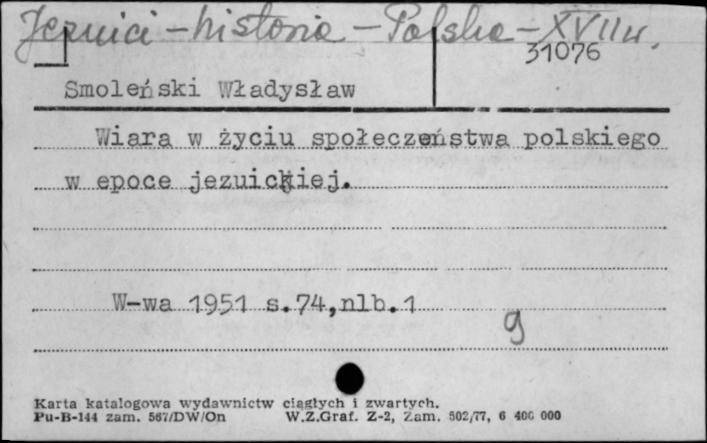 Jezuici - historia - Polska - XVII w.
31076
Smoleński Władysław
Wiara w życiu społeczeństwa polskiego
w epoce jezuickiej.
W-wa 1951 s.74,nlb.1
g
Karta katalogowa wydawnictw ciągłych i zwartych.
Pu-B-144 zam. 567/DW/On W.Z.Graf. Z-2, Zam. 502/77, 6 400 000